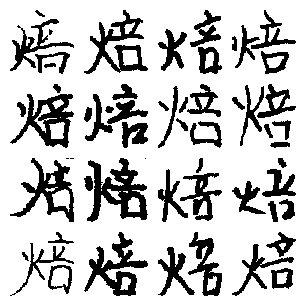 焙焙焙焙
焙焙焙焙
焙焙焙焙
焙焙焙焙